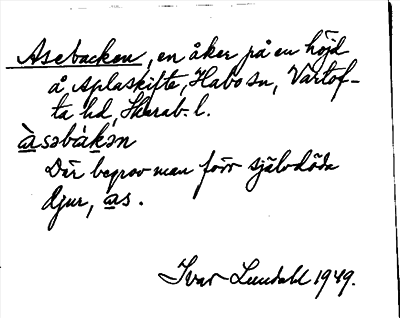 Asebacken, en åker på en höjd
å Aplaskifte, Habo sn, Vartof-
ta hd, Skarab. l.
àsəbàkən
Där begrov man förr självdöda
djur, as.
Ivar Lundahl 1949.